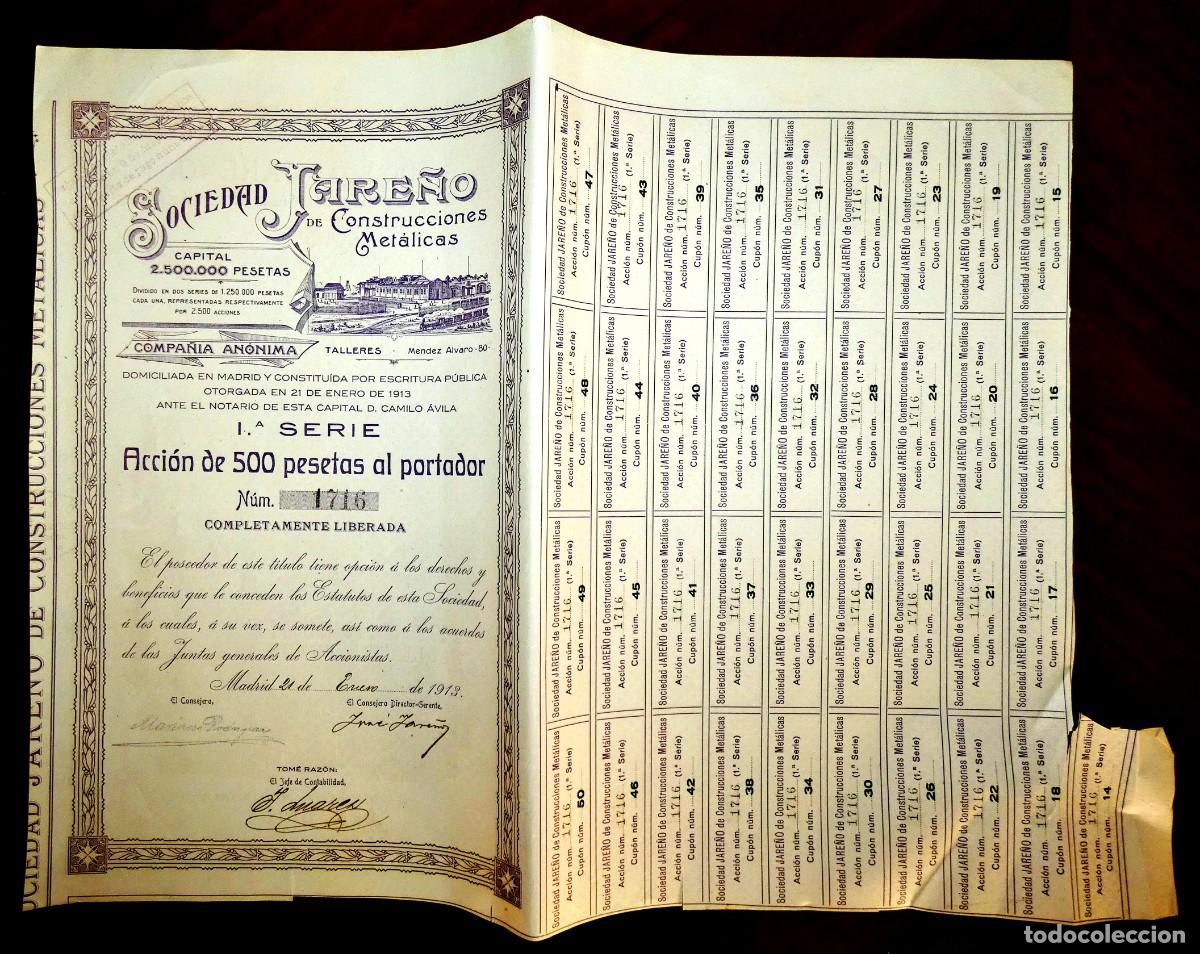 SOCIEDAD JAREÑO DE CONSTRUCCIONES METÁLICAS
SOCIEDAD JAREÑO
DE Construcciones
Metálicas
CAPITAL
2.500.000 PESETAS
DIVIDIDO EN DOS SERIES DE 1.250.000 PESETAS
CADA UNA, REPRESENTADAS RESPECTIVAMENTE
POR 2.500 ACCIONES
COMPAÑIA ANÓNIMA
TALLERES Mendez Alvaro-80-
DOMICILIADA EN MADRID Y CONSTITUÍDA POR ESCRITURA PÚBLICA
OTORGADA EN 21 DE ENERO DE 1913
ANTE EL NOTARIO DE ESTA CAPITAL D. CAMILO ÁVILA
1.ª SERIE
Acción de 500 pesetas al portador
Núm. 1716
COMPLETAMENTE LIBERADA
El poseedor de este título tiene opción á los derechos y
beneficios que le conceden los Estatutos de esta Sociedad,
á los cuales, á su vez, se somete, así como á los acuerdos
de las Juntas generales de Accionistas.
Madrid 21 de Enero de 1913.
El Consejero,
El Consejero Director-Gerente,
José Jareño
TOMÉ RAZÓN:
El Jefe de Contabilidad,
Sociedad JAREÑO de Construcciones Metálicas
Acción núm. 1716 (1.ª Serie)
Cupón núm. 47
Sociedad JAREÑO de Construcciones Metálicas
Acción núm. 1716 (1.ª Serie)
Cupón núm. 43
Sociedad JAREÑO de Construcciones Metálicas
Acción núm. 1716 (1.ª Serie)
Cupón núm. 39
Sociedad JAREÑO de Construcciones Metálicas
Acción núm. 1716 (1.ª Serie)
Cupón núm. 35
Sociedad JAREÑO de Construcciones Metálicas
Acción núm. 1716 (1.ª Serie)
Cupón núm. 31
Sociedad JAREÑO de Construcciones Metálicas
Acción núm. 1716 (1.ª Serie)
Cupón núm. 27
Sociedad JAREÑO de Construcciones Metálicas
Acción núm. 1716 (1.ª Serie)
Cupón núm. 23
Sociedad JAREÑO de Construcciones Metálicas
Acción núm. 1716 (1.ª Serie)
Cupón núm. 19
Sociedad JAREÑO de Construcciones Metálicas
Acción núm. 1716 (1.ª Serie)
Cupón núm. 15
Sociedad JAREÑO de Construcciones Metálicas
Acción núm. 1716 (1.ª Serie)
Cupón núm. 48
Sociedad JAREÑO de Construcciones Metálicas
Acción núm. 1716 (1.ª Serie)
Cupón núm. 44
Sociedad JAREÑO de Construcciones Metálicas
Acción núm. 1716 (1.ª Serie)
Cupón núm. 40
Sociedad JAREÑO de Construcciones Metálicas
Acción núm. 1716 (1.ª Serie)
Cupón núm. 36
Sociedad JAREÑO de Construcciones Metálicas
Acción núm. 1716 (1.ª Serie)
Cupón núm. 32
Sociedad JAREÑO de Construcciones Metálicas
Acción núm. 1716 (1.ª Serie)
Cupón núm. 28
Sociedad JAREÑO de Construcciones Metálicas
Acción núm. 1716 (1.ª Serie)
Cupón núm. 24
Sociedad JAREÑO de Construcciones Metálicas
Acción núm. 1716 (1.ª Serie)
Cupón núm. 20
Sociedad JAREÑO de Construcciones Metálicas
Acción núm. 1716 (1.ª Serie)
Cupón núm. 16
Sociedad JAREÑO de Construcciones Metálicas
Acción núm. 1716 (1.ª Serie)
Cupón núm. 49
Sociedad JAREÑO de Construcciones Metálicas
Acción núm. 1716 (1.ª Serie)
Cupón núm. 45
Sociedad JAREÑO de Construcciones Metálicas
Acción núm. 1716 (1.ª Serie)
Cupón núm. 41
Sociedad JAREÑO de Construcciones Metálicas
Acción núm. 1716 (1.ª Serie)
Cupón núm. 37
Sociedad JAREÑO de Construcciones Metálicas
Acción núm. 1716 (1.ª Serie)
Cupón núm. 33
Sociedad JAREÑO de Construcciones Metálicas
Acción núm. 1716 (1.ª Serie)
Cupón núm. 29
Sociedad JAREÑO de Construcciones Metálicas
Acción núm. 1716 (1.ª Serie)
Cupón núm. 25
Sociedad JAREÑO de Construcciones Metálicas
Acción núm. 1716 (1.ª Serie)
Cupón núm. 21
Sociedad JAREÑO de Construcciones Metálicas
Acción núm. 1716 (1.ª Serie)
Cupón núm. 17
Sociedad JAREÑO de Construcciones Metálicas
Acción núm. 1716 (1.ª Serie)
Cupón núm. 50
Sociedad JAREÑO de Construcciones Metálicas
Acción núm. 1716 (1.ª Serie)
Cupón núm. 46
Sociedad JAREÑO de Construcciones Metálicas
Acción núm. 1716 (1.ª Serie)
Cupón núm. 42
Sociedad JAREÑO de Construcciones Metálicas
Acción núm. 1716 (1.ª Serie)
Cupón núm. 38
Sociedad JAREÑO de Construcciones Metálicas
Acción núm. 1716 (1.ª Serie)
Cupón núm. 34
Sociedad JAREÑO de Construcciones Metálicas
Acción núm. 1716 (1.ª Serie)
Cupón núm. 30
Sociedad JAREÑO de Construcciones Metálicas
Acción núm. 1716 (1.ª Serie)
Cupón núm. 26
Sociedad JAREÑO de Construcciones Metálicas
Acción núm. 1716 (1.ª Serie)
Cupón núm. 22
Sociedad JAREÑO de Construcciones Metálicas
Acción núm. 1716 (1.ª Serie)
Cupón núm. 18
Sociedad JAREÑO de Construcciones Metálicas
Acción núm. 1716 (1.ª Serie)
Cupón núm. 14
todocoleccion